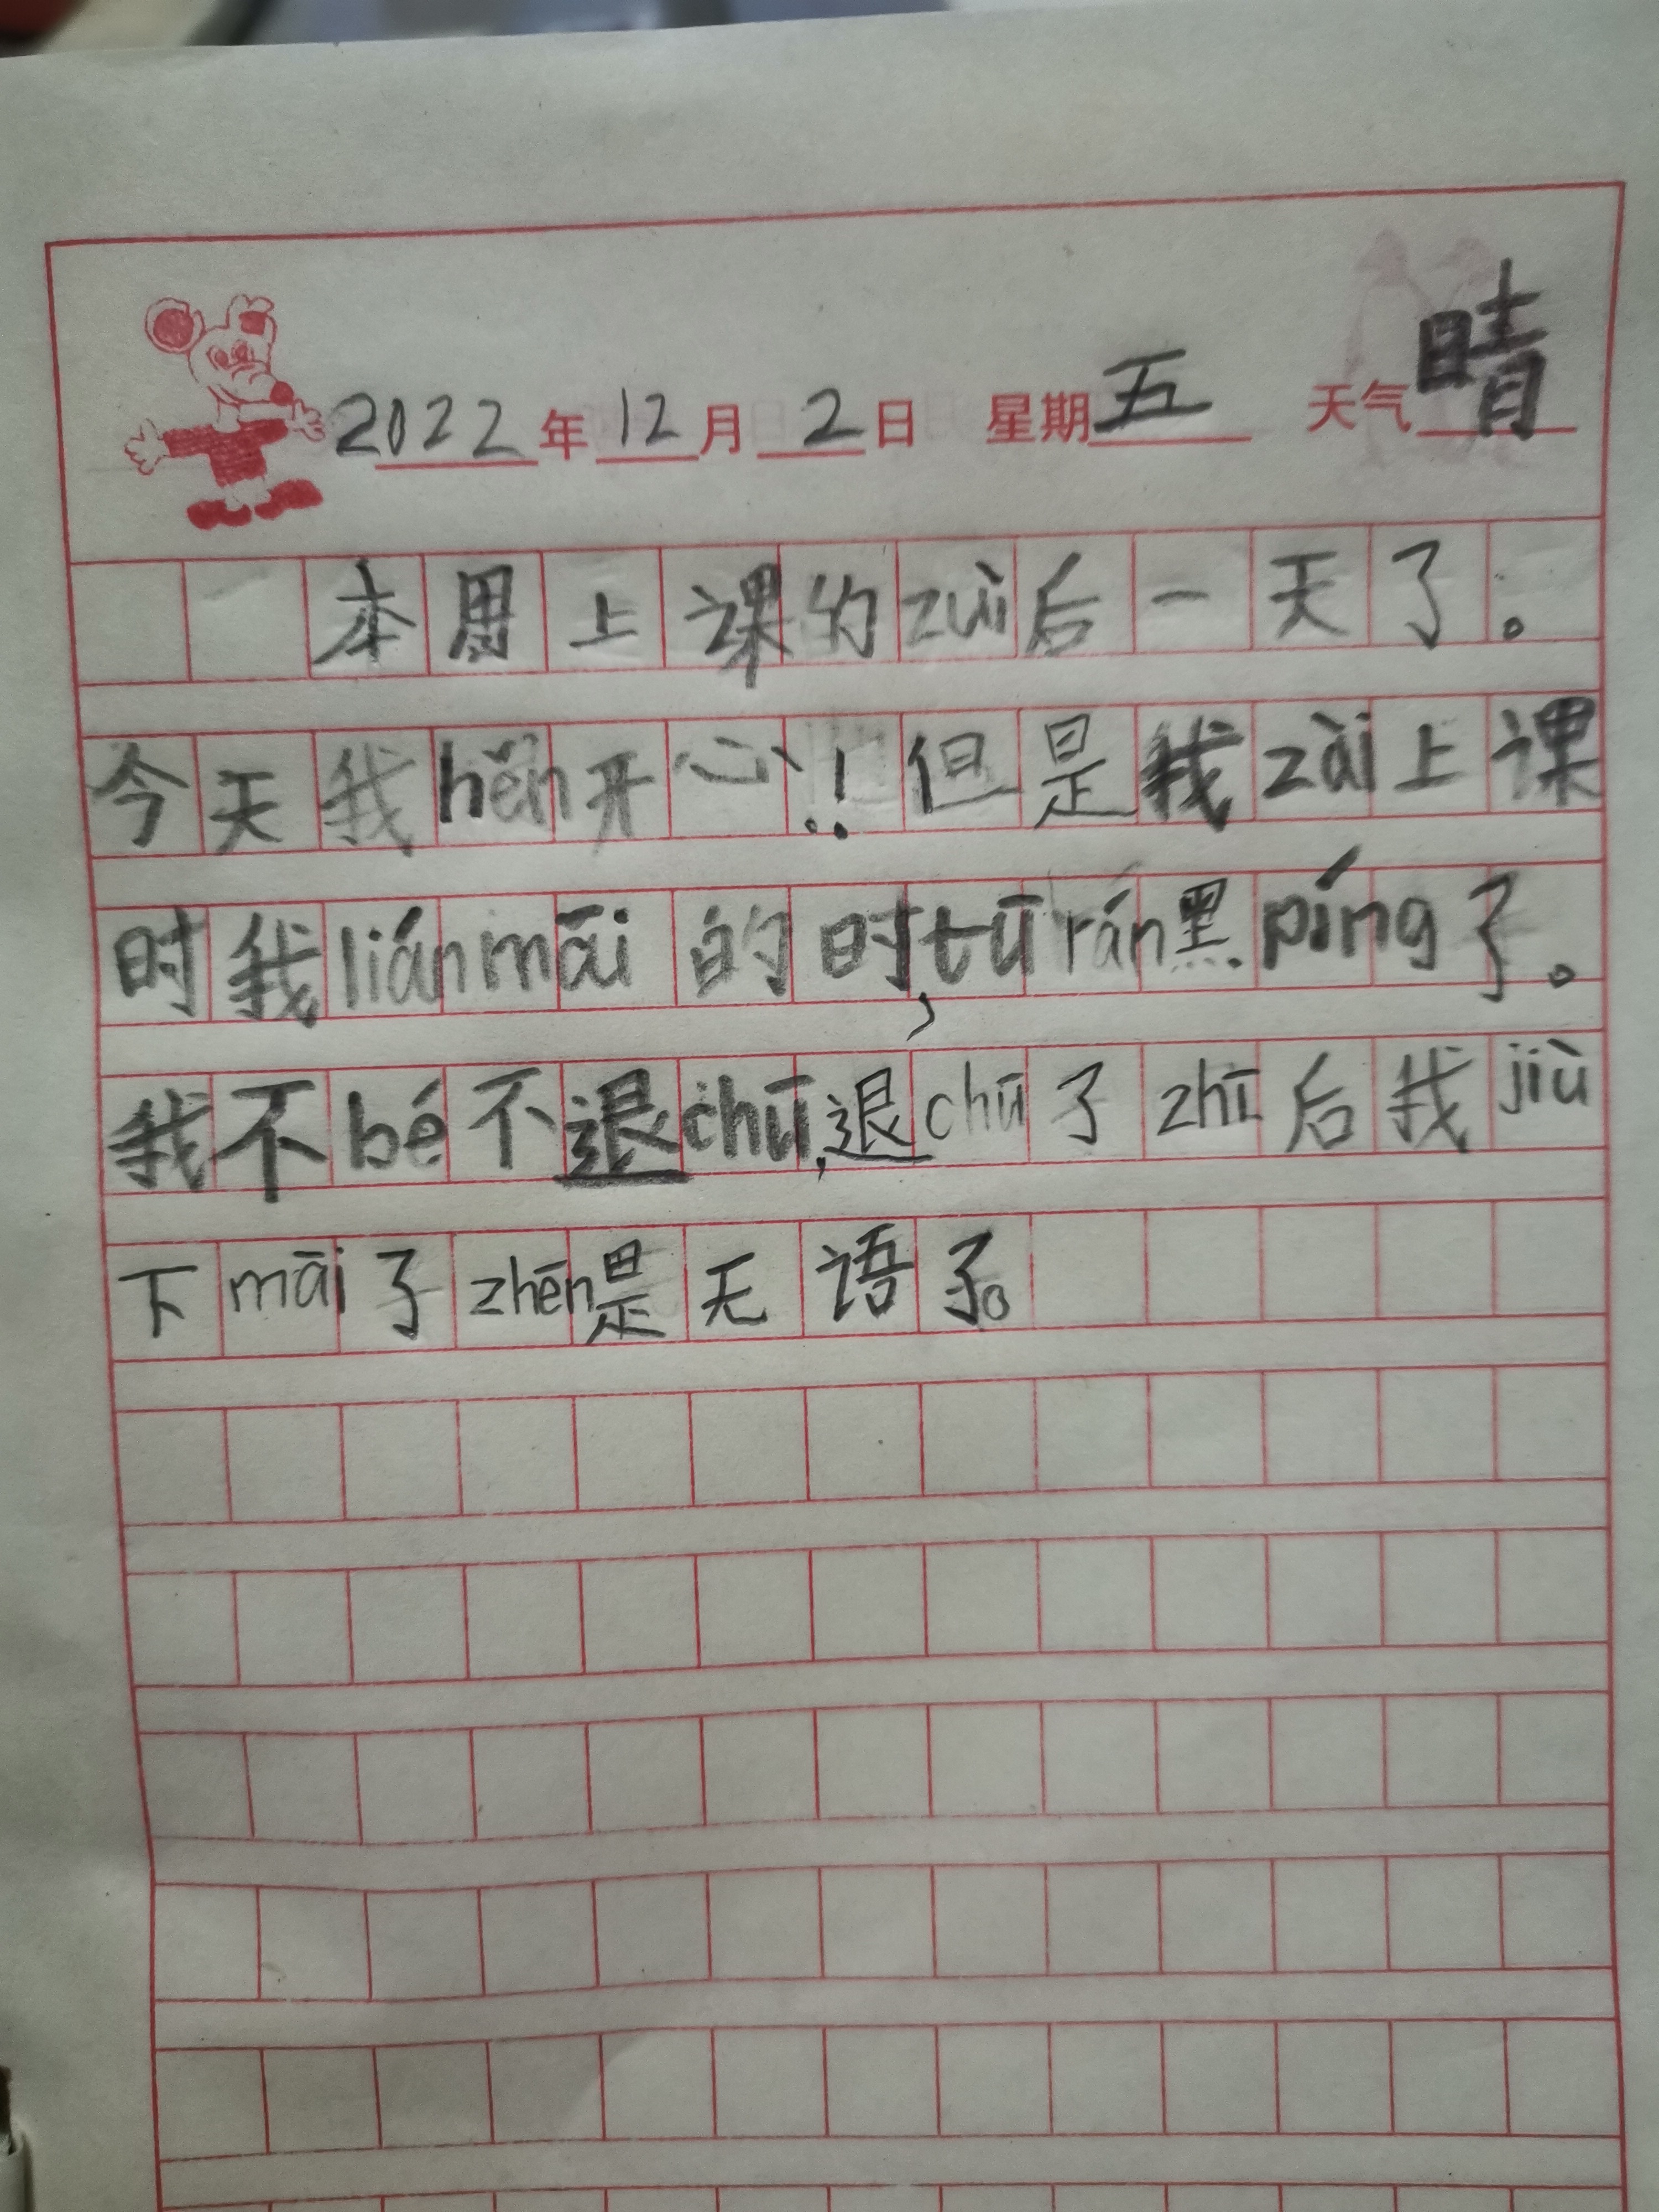 2022年12月2日 星期五 天气晴
本周上课的zuì后一天了。
今天我hěn开心!!但是我zài上课
时我liánmāi的时,tūrán黑píng了。
我不bé不退chū,退chū了zhī后我jiù
下māi了zhēn是无语了。